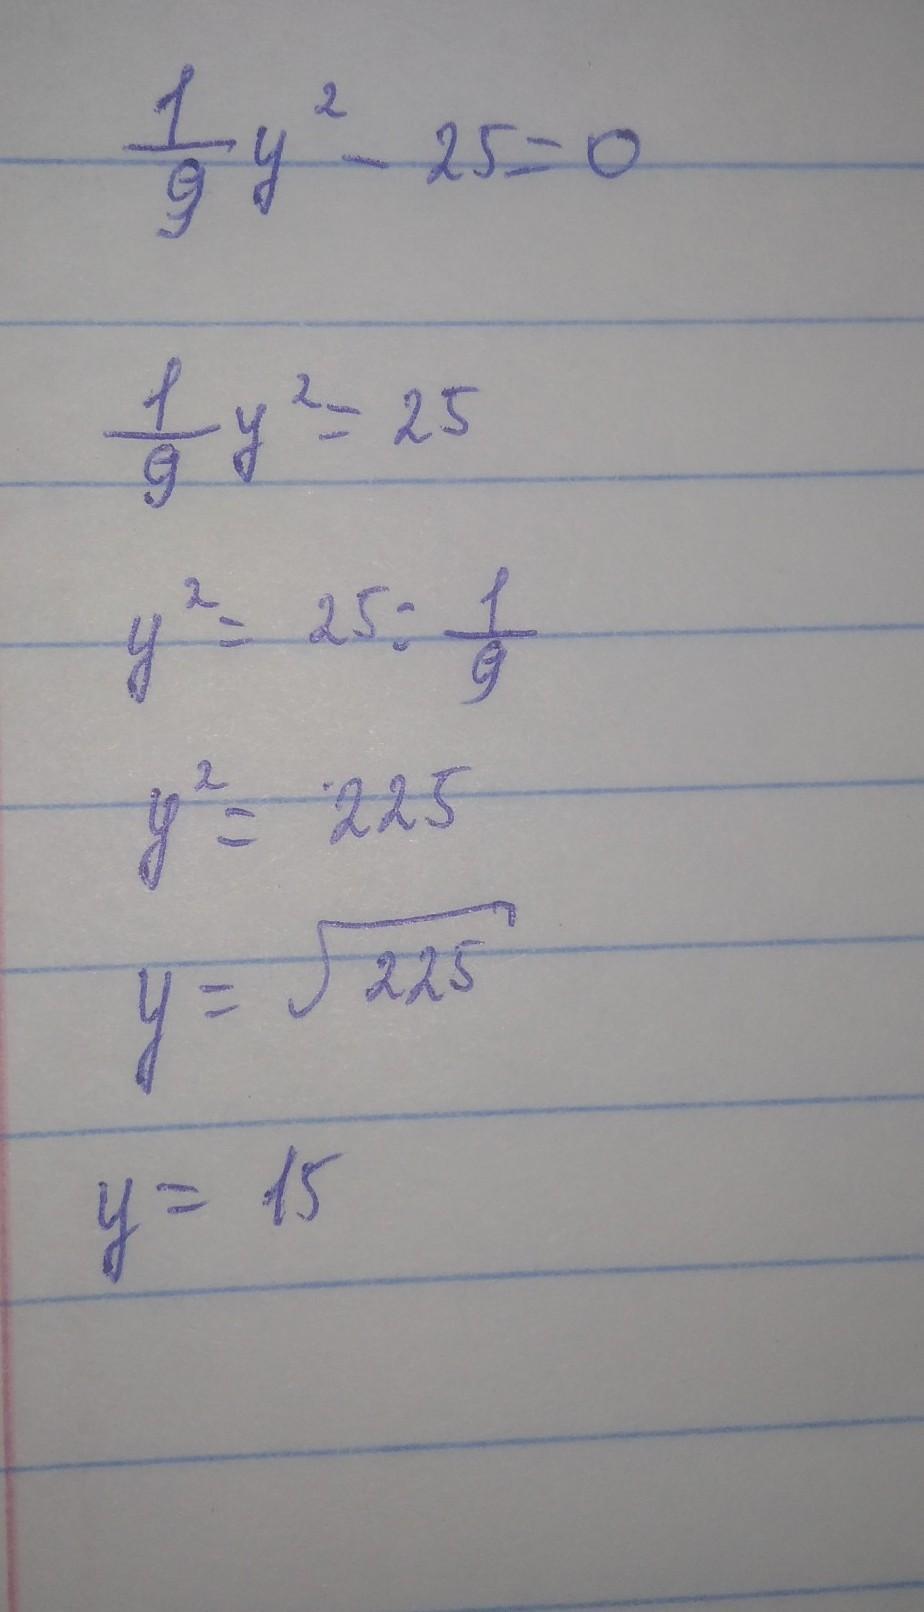 1/9 y² - 25 = 0
1/9 y² = 25
y² = 25 : 1/9
y² = 225
y = √225
y = 15